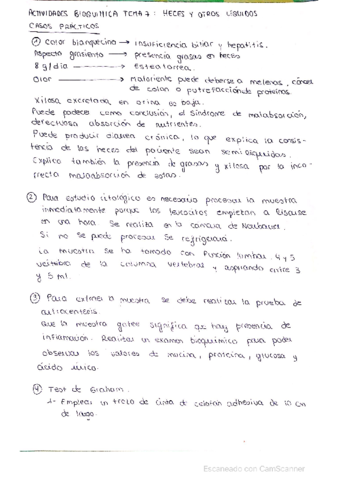 ACTIVIDADES BIOQUIMICA TEMA 7: HECES Y OTROS LÍQUIDOS
CASOS PRACTICOS
① Color blanquecino → insuficiencia biliar y hepatitis.
Aspecto grasiento → presencia grasas en heces
8 g/día → esteatorrea.
Olor → maloliente puede deberse a melenas, cáncer
de colon o putrefacción de proteínas.
Xilosa excretada en orina es baja.
Puede padecer como conclusión, el Síndrome de malabsorción,
defectuosa absorción de nutrientes.
Puede producir diarrea crónica, lo que explica la consis-
tencia de las heces del paciente sean semiliquidas.
Explica también la presencia de grasas y xilosa por la inco-
rrecta malabsorción de estas.
② Para estudio citológico es necesario procesar la muestra
inmediatamente porque los leucocitos empiezan a lisarse
en una hora. Se realiza en la camara de Neubauer.
Si no se puede procesar se refrigerará.
La muestra se ha tomado con Punción lumbar 4 y 5
vertebra de la columna vertebral y aspirando entre 3
y 5 ml.
③ Para extraer la muestra se debe realizar la prueba de
artrocentesis.
Que la muestra gotee significa que hay presencia de
inflamación. Realizar un examen bioquímico para poder
observar los valores de mucina, proteina, glucosa y
ácido úrico.
④ Test de Graham.
1- Emplear un trozo de cinta de celofán adhesiva de 10 cm
de largo.
Escaneado con CamScanner